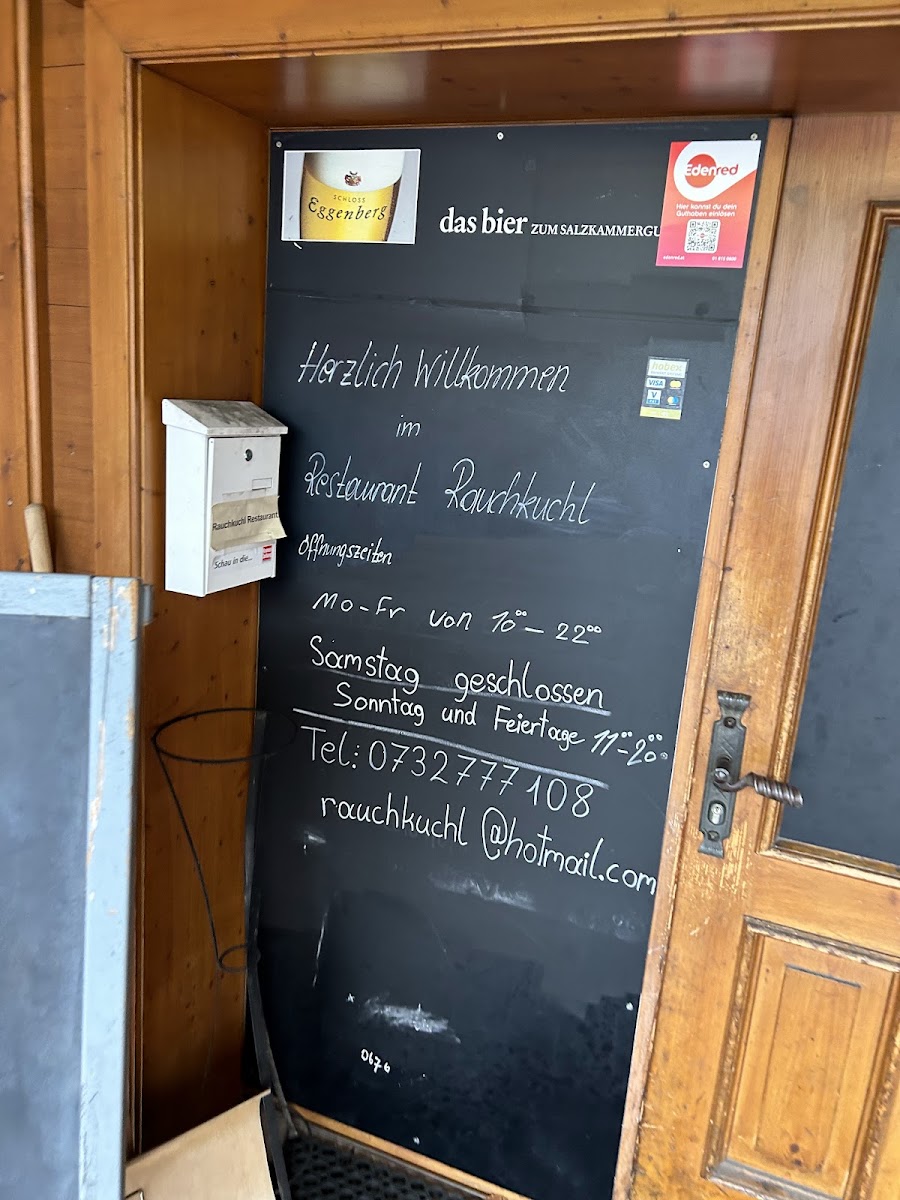 SCHLOSS
Eggenberg
das bier ZUM SALZKAMMERGU
Edenred
Hier kannst du dein
Guthaben einlösen
edenred.at
hobex
VISA
V PAY
Herzlich Willkommen
im
Restaurant Rauchkuchl
Öffnungszeiten
Mo-Fr von 10⁰⁰ - 22⁰⁰
Samstag geschlossen
Sonntag und Feiertage 11⁰⁰-20⁰⁰
Tel.: 0732777108
rauchkuchl@hotmail.com
0676
Rauchkuchl Restaurant
Schau in die...